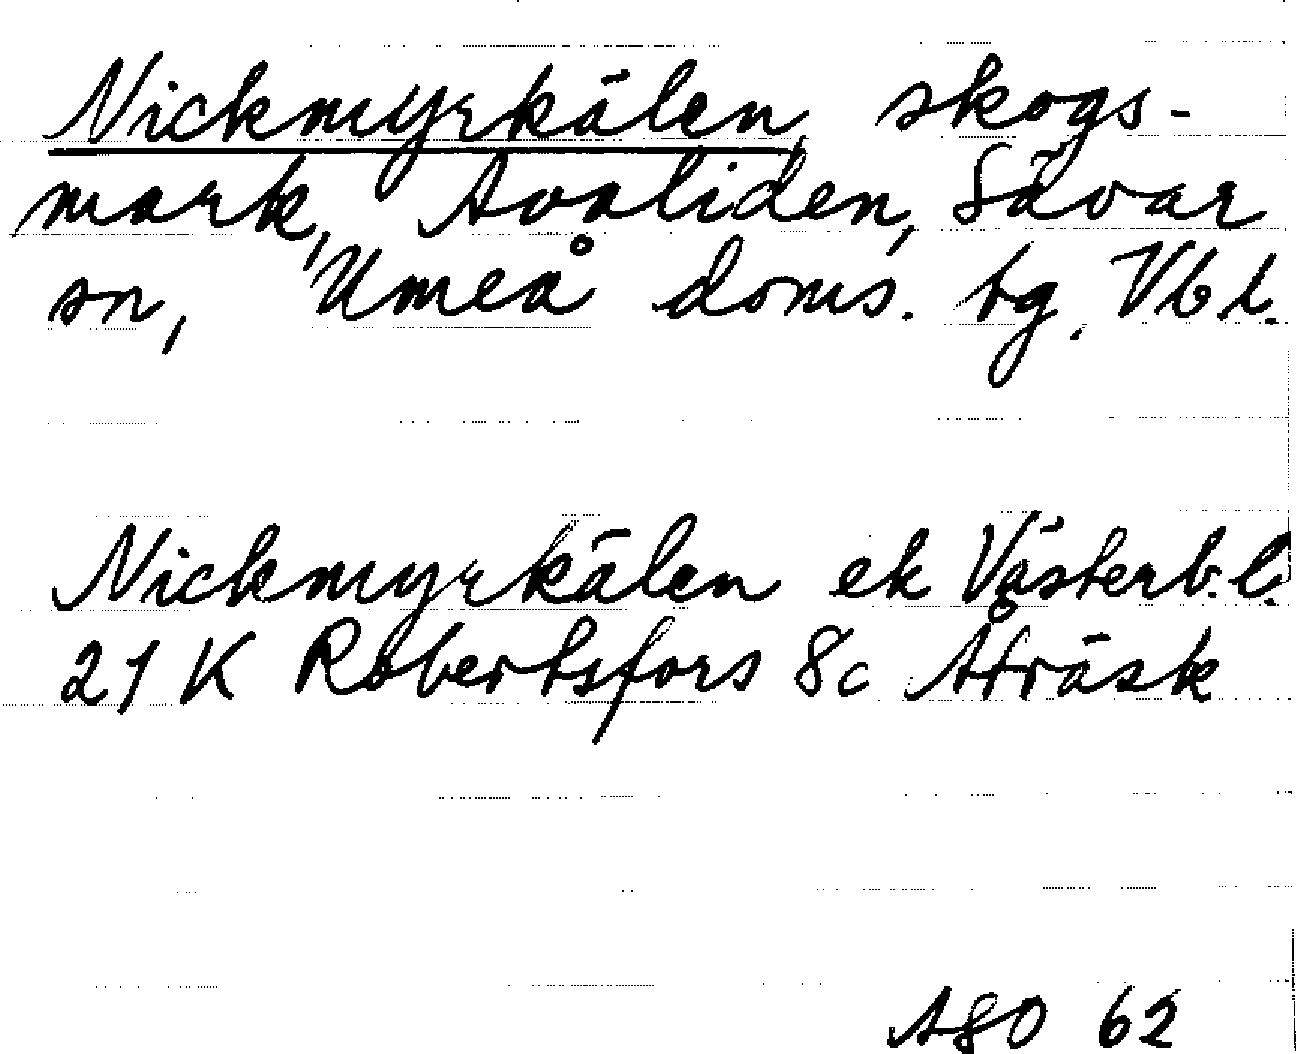 Nickmyrkälen, skogs-
mark, Avaliden, Sävar
sn, Umeå doms. tg. Vbl.
Nickmyrkälen ek Västerb. l.
21 K Robertsfors 8c Åträsk
ASO 62